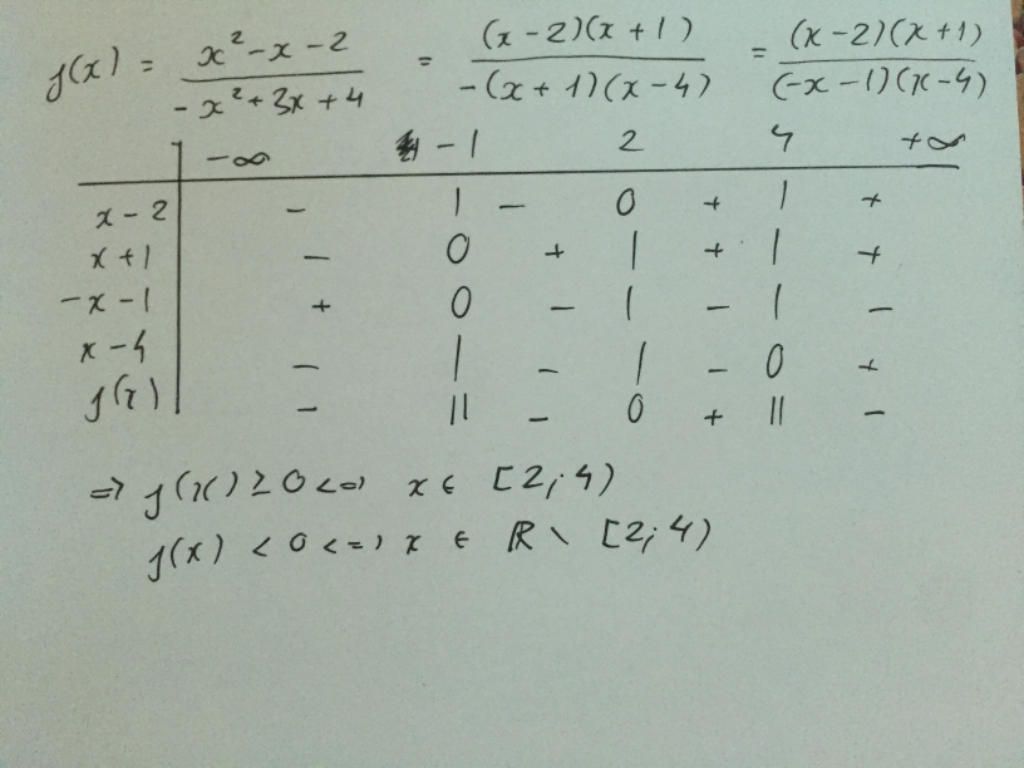 f(x) = (x² - x - 2)/(-x² + 3x + 4) = ((x - 2)(x + 1))/(-(x + 1)(x - 4)) = ((x - 2)(x + 1))/((-x - 1)(x - 4))
-∞ -1 2 4 +∞
x - 2 - | - 0 + | +
x + 1 - 0 + | + | +
-x - 1 + 0 - | - | -
x - 4 - | - | - 0 +
f(x) - || - 0 + || -
=> f(x) ≥ 0 <=> x ∈ [2; 4)
f(x) < 0 <=> x ∈ ℝ \ [2; 4)